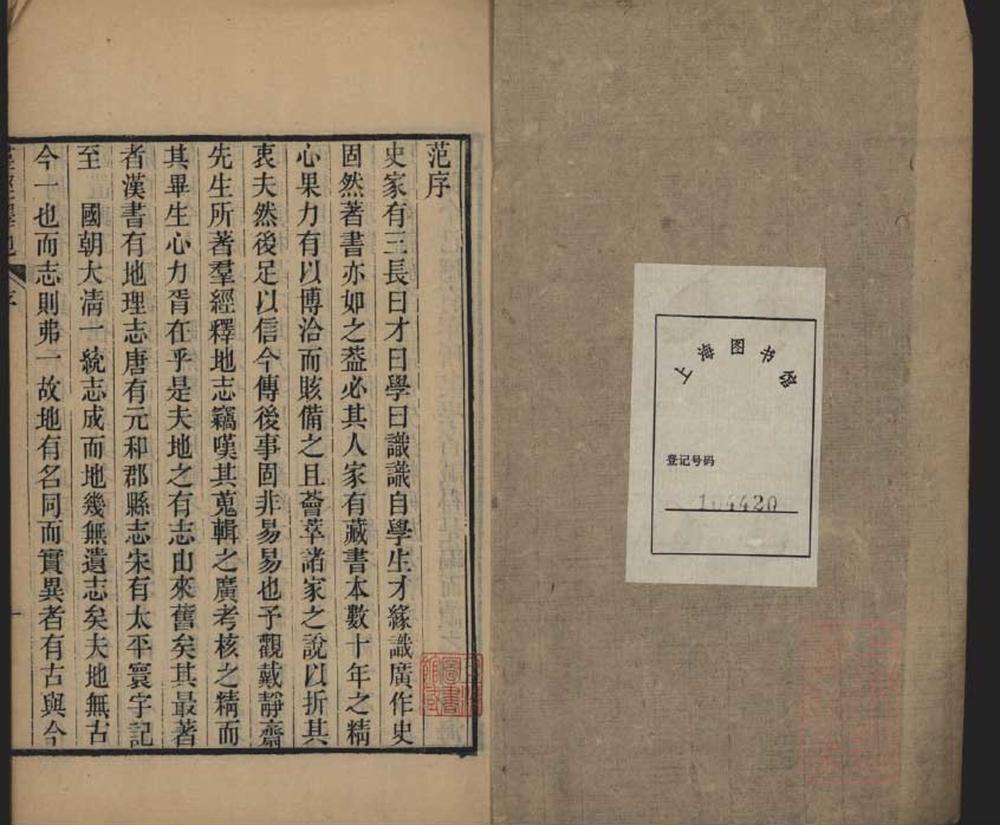 上海图书馆
登记号码
范序
史家有三長曰才曰學曰識識自學生才緣識廣作史
固然著書亦如之蓋必其人家有藏書本數十年之精
心果力有以博洽而賅備之且薈萃諸家之說以折其
衷夫然後足以信今傳後事固非易易也予觀戴靜齋
先生所著羣經釋地志竊嘆其蒐輯之廣考核之精而
其畢生心力胥在乎是夫地之有志由來舊矣其最著
者漢書有地理志唐有元和郡縣志宋有太平寰宇記
至　國朝大淸一統志成而地幾無遺志矣夫地無古
今一也而志則弗一故地有名同而實異者有古與今